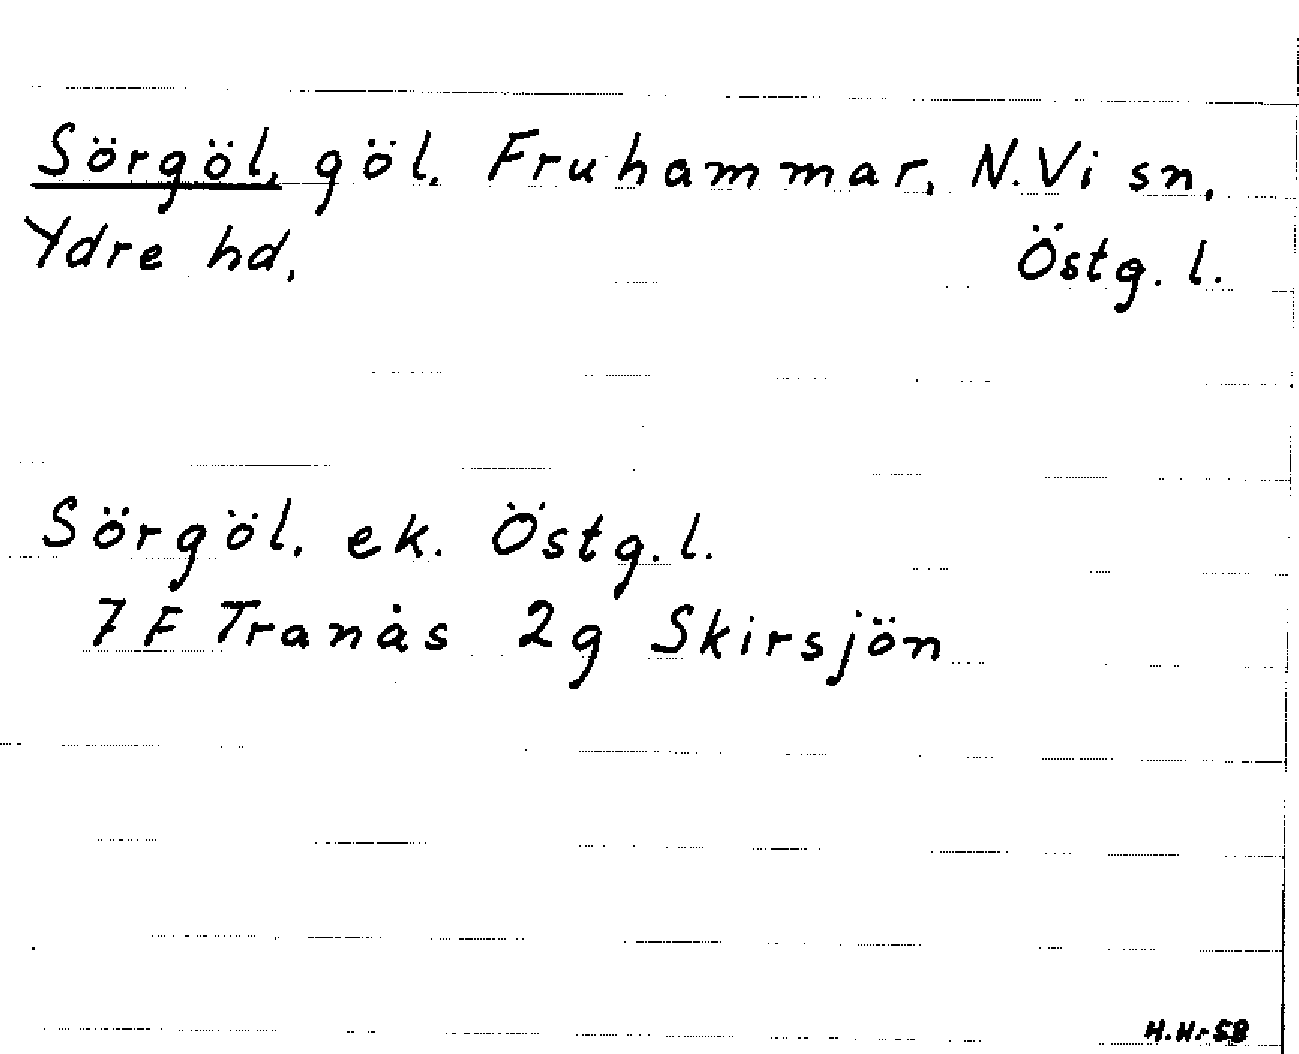 Sörgöl, göl. Fruhammar, N.Vi sn,
Ydre hd. Östg. l.
Sörgöl. ek. Östg. l.
7 F Tranås 2g Skirsjön
H.H-58